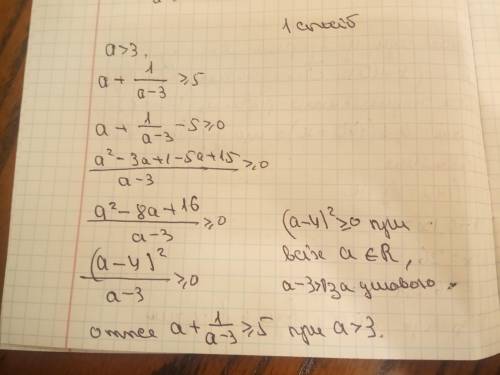 1 спосіб
a>3.
a + 1/(a-3) ≥ 5
a + 1/(a-3) - 5 ≥ 0
(a² - 3a + 1 - 5a + 15)/(a-3) ≥ 0
(a² - 8a + 16)/(a-3) ≥ 0 (a-4)² ≥ 0 при
(a-4)²/(a-3) ≥ 0 всіх a ∈ R,
a-3> за умовою.
отже a + 1/(a-3) ≥ 5 при a > 3.